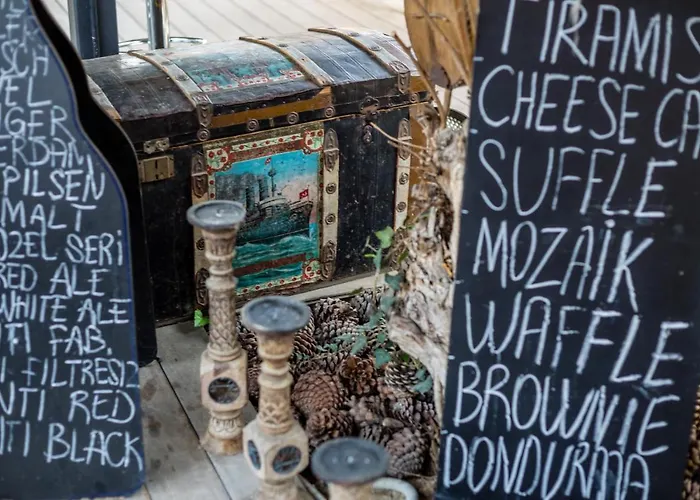 SCH
VEL
NGER
ERDAM
PILSEN
MALT
ÖZEL SERİ
RED ALE
WHITE ALE
FAB.
FİLTRESİZ
RED
BLACK
TIRAMIS
CHEESE CA
SUFFLE
MOZAİK
WAFFLE
BROWNIE
DONDURMA